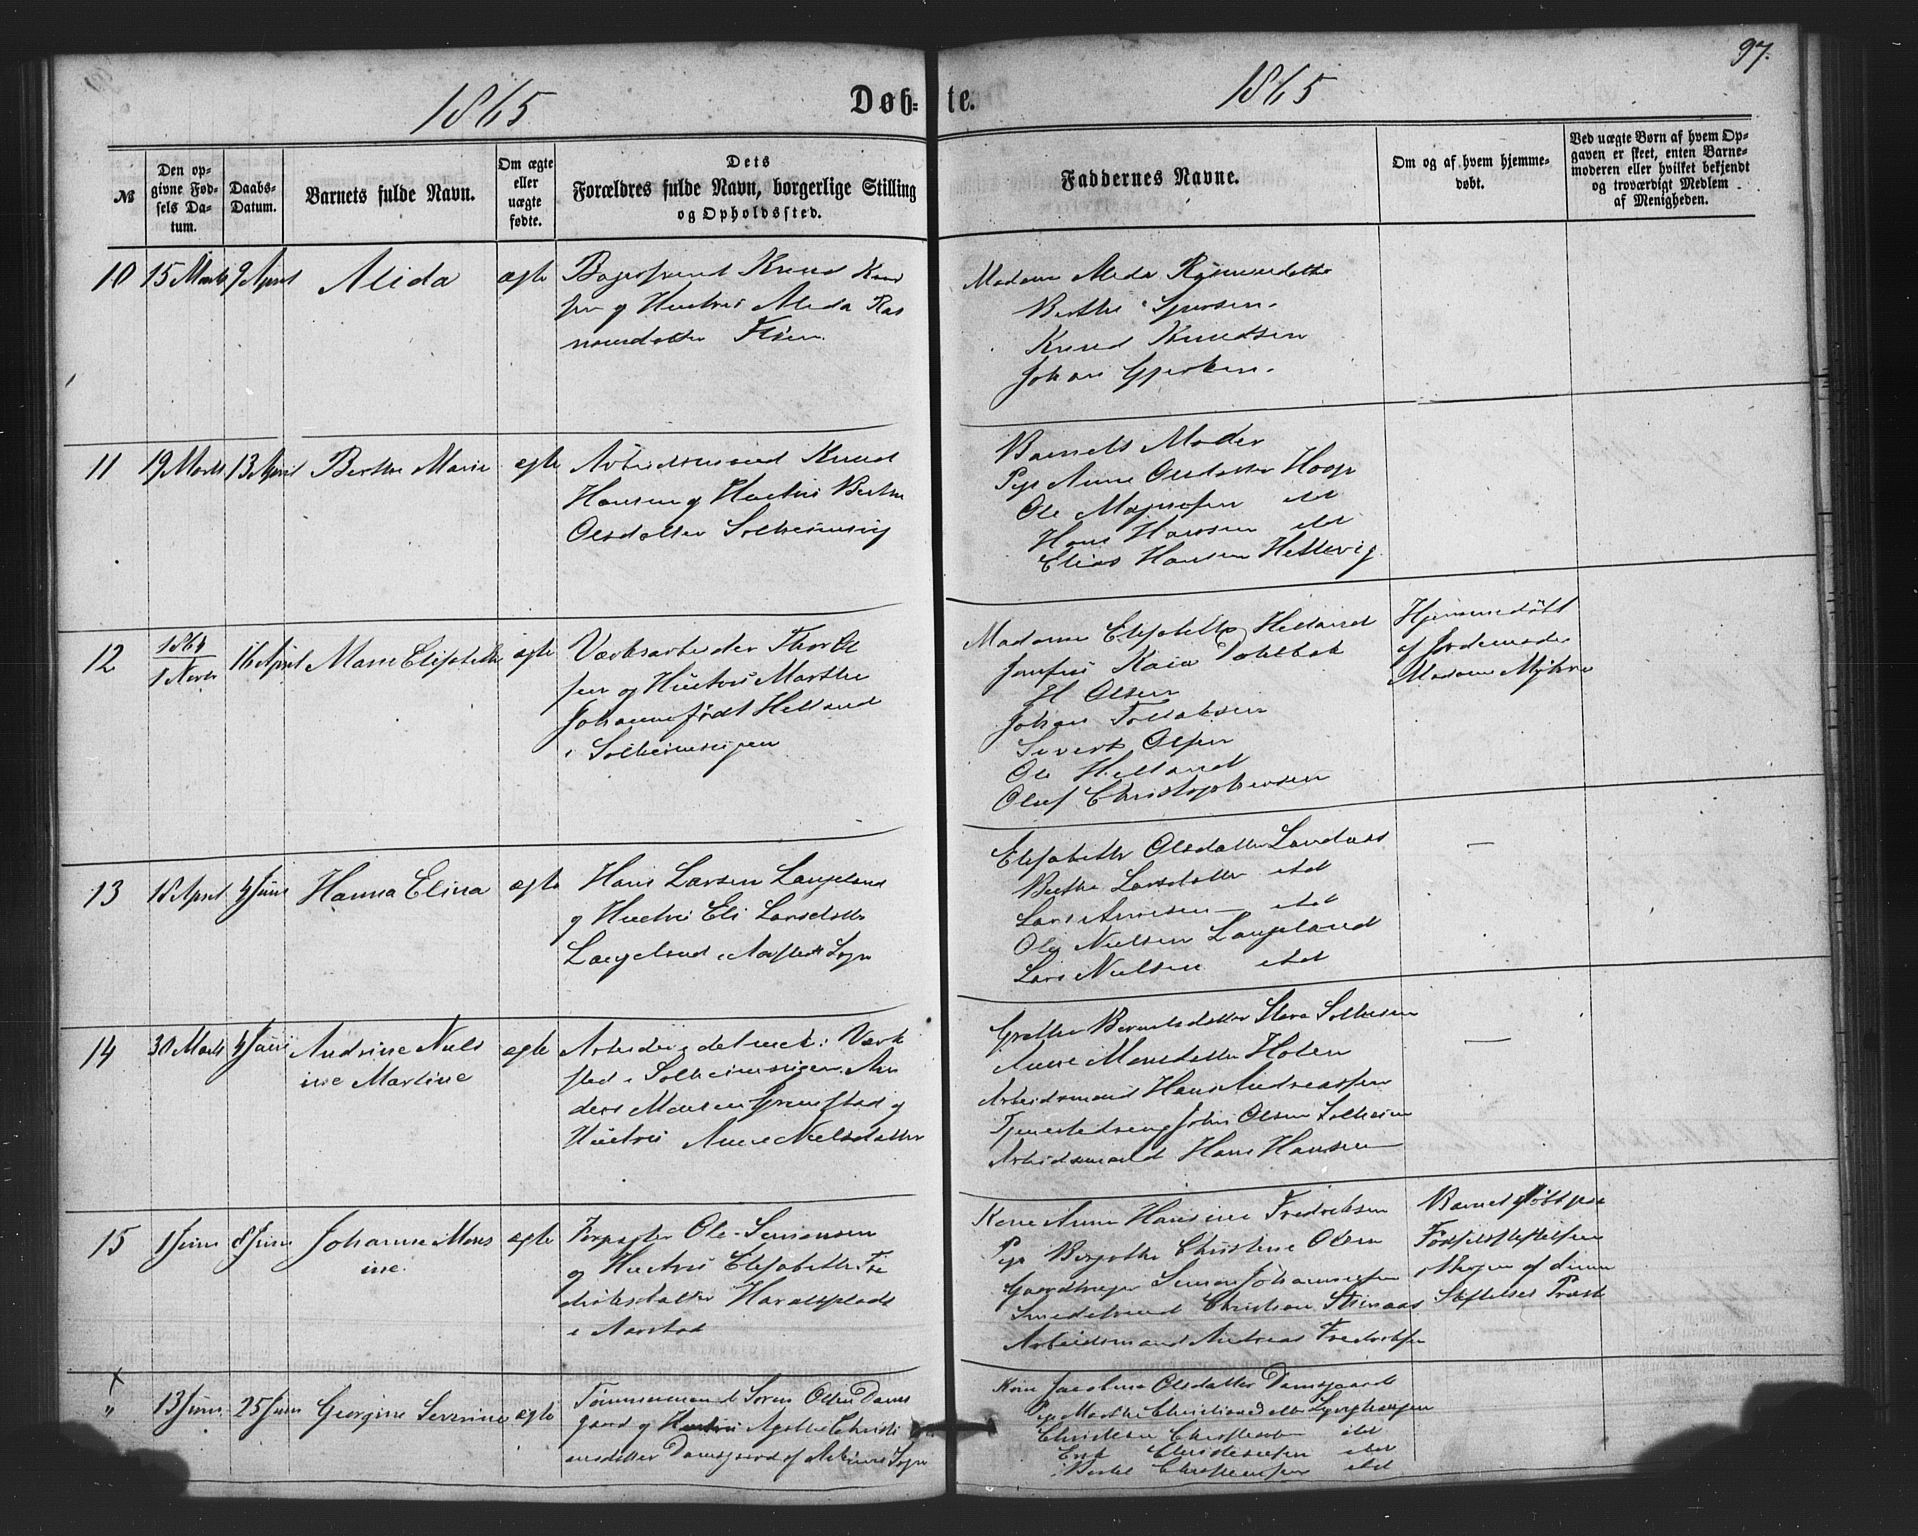 97.
1865
Døb-te.
1865
№
Den op-
givne Fød-
sels Da-
tum.
Daabs-
Datum.
Barnets fulde Navn.
Om ægte
eller
uægte
fødte.
Dets
Forældres fulde Navn, borgerlige Stilling
og Opholdssted.
Faddernes Navne.
Om og af hvem hjemme-
døbt.
Ved uægte Børn af hvem Op-
gaven er skeet, enten Barne-
moderen eller hvilket bekjendt
og troværdigt Medlem
af Menigheden.
10 15 Marts 9 April Alida ægte
Knud
og Hustru Alida Ras
Madame Alida
Berthe
Knud Knudsen
Johan
11 19 Marts 13 April Berthe Marie ægte
Arbeidsmand Knud
Hansen og Hustru Berthe
Olsdatter Solheimsvig
Barnets Moder
Pige Anne Olsdatter Hoop
Ole Mognesen itd
Hans Hansen itd
Elias Hansen Hellevig
12 1864 1 Novbr 16 April Marie Elisabeth ægte
Værksarbeider Thor Ol
sen og Hustru Marthe
Johanne født Helland
i Solheimsvigen
Madame Elisabeth Helland
Jomfru Kaia
H Olsen
Johan Tollaksen
Sivert Olsen
Ole Helland
Oluf Christophersen
Hjemmedøbt
af Jordemoder
Madame Myhre
13 18 April 4 Juni Hanna Elina ægte
Hans Larsen Langeland
og Hustru Eli Larsdatter
Langeland i Sogn
Elisabeth Olsdatter Landaas
Berthe Larsdatter itd
Lars itd
Ole Nielsen Langeland
Lars Nielsen itd
—
14 30 Marts 4 Juni Andrine Niels
ine Martine ægte
Arbeider ved det mek: Værk
sted i Solheimsvigen An
ders Monsen Grimstad og
Hustru Anne Nielsdatter
Grethe Berentsdatter Store Solheim
Anne Monsdatter Holen
Arbeidsmand Hans Andreassen
Tjenestedreng Johs Olsen Solheim
Arbeidsmand Hans Hansen
—
15 1 Juni 8 Juni Johanne Mons
ine ægte
Forpagter Ole Simonsen
og Hustru Elisabeth Fre
driksdatter Haralsplads
i Aarstad
Kone Anna Hansine Fredriksen
Pige Bergithe Christine Olsen
Gaardbruger Simon Johannessen
Smedsvend Christian
Arbeidsmand Andreas Fredriksen
Barnet døbt paa
Fødselsstiftelsen
i Bergen af denne
Stiftelses Præst
x
" 13 Juni 25 Juni Georgine Severine ægte
Tømmermand Søren Olsen Dams
gaard og Hustru Christi
ansdatter Damsgaard af Sogn
Kone Jacobine Olsdatter Damsgaard
Pige Marthe Christiansdatter
Christian itd
itd
itd